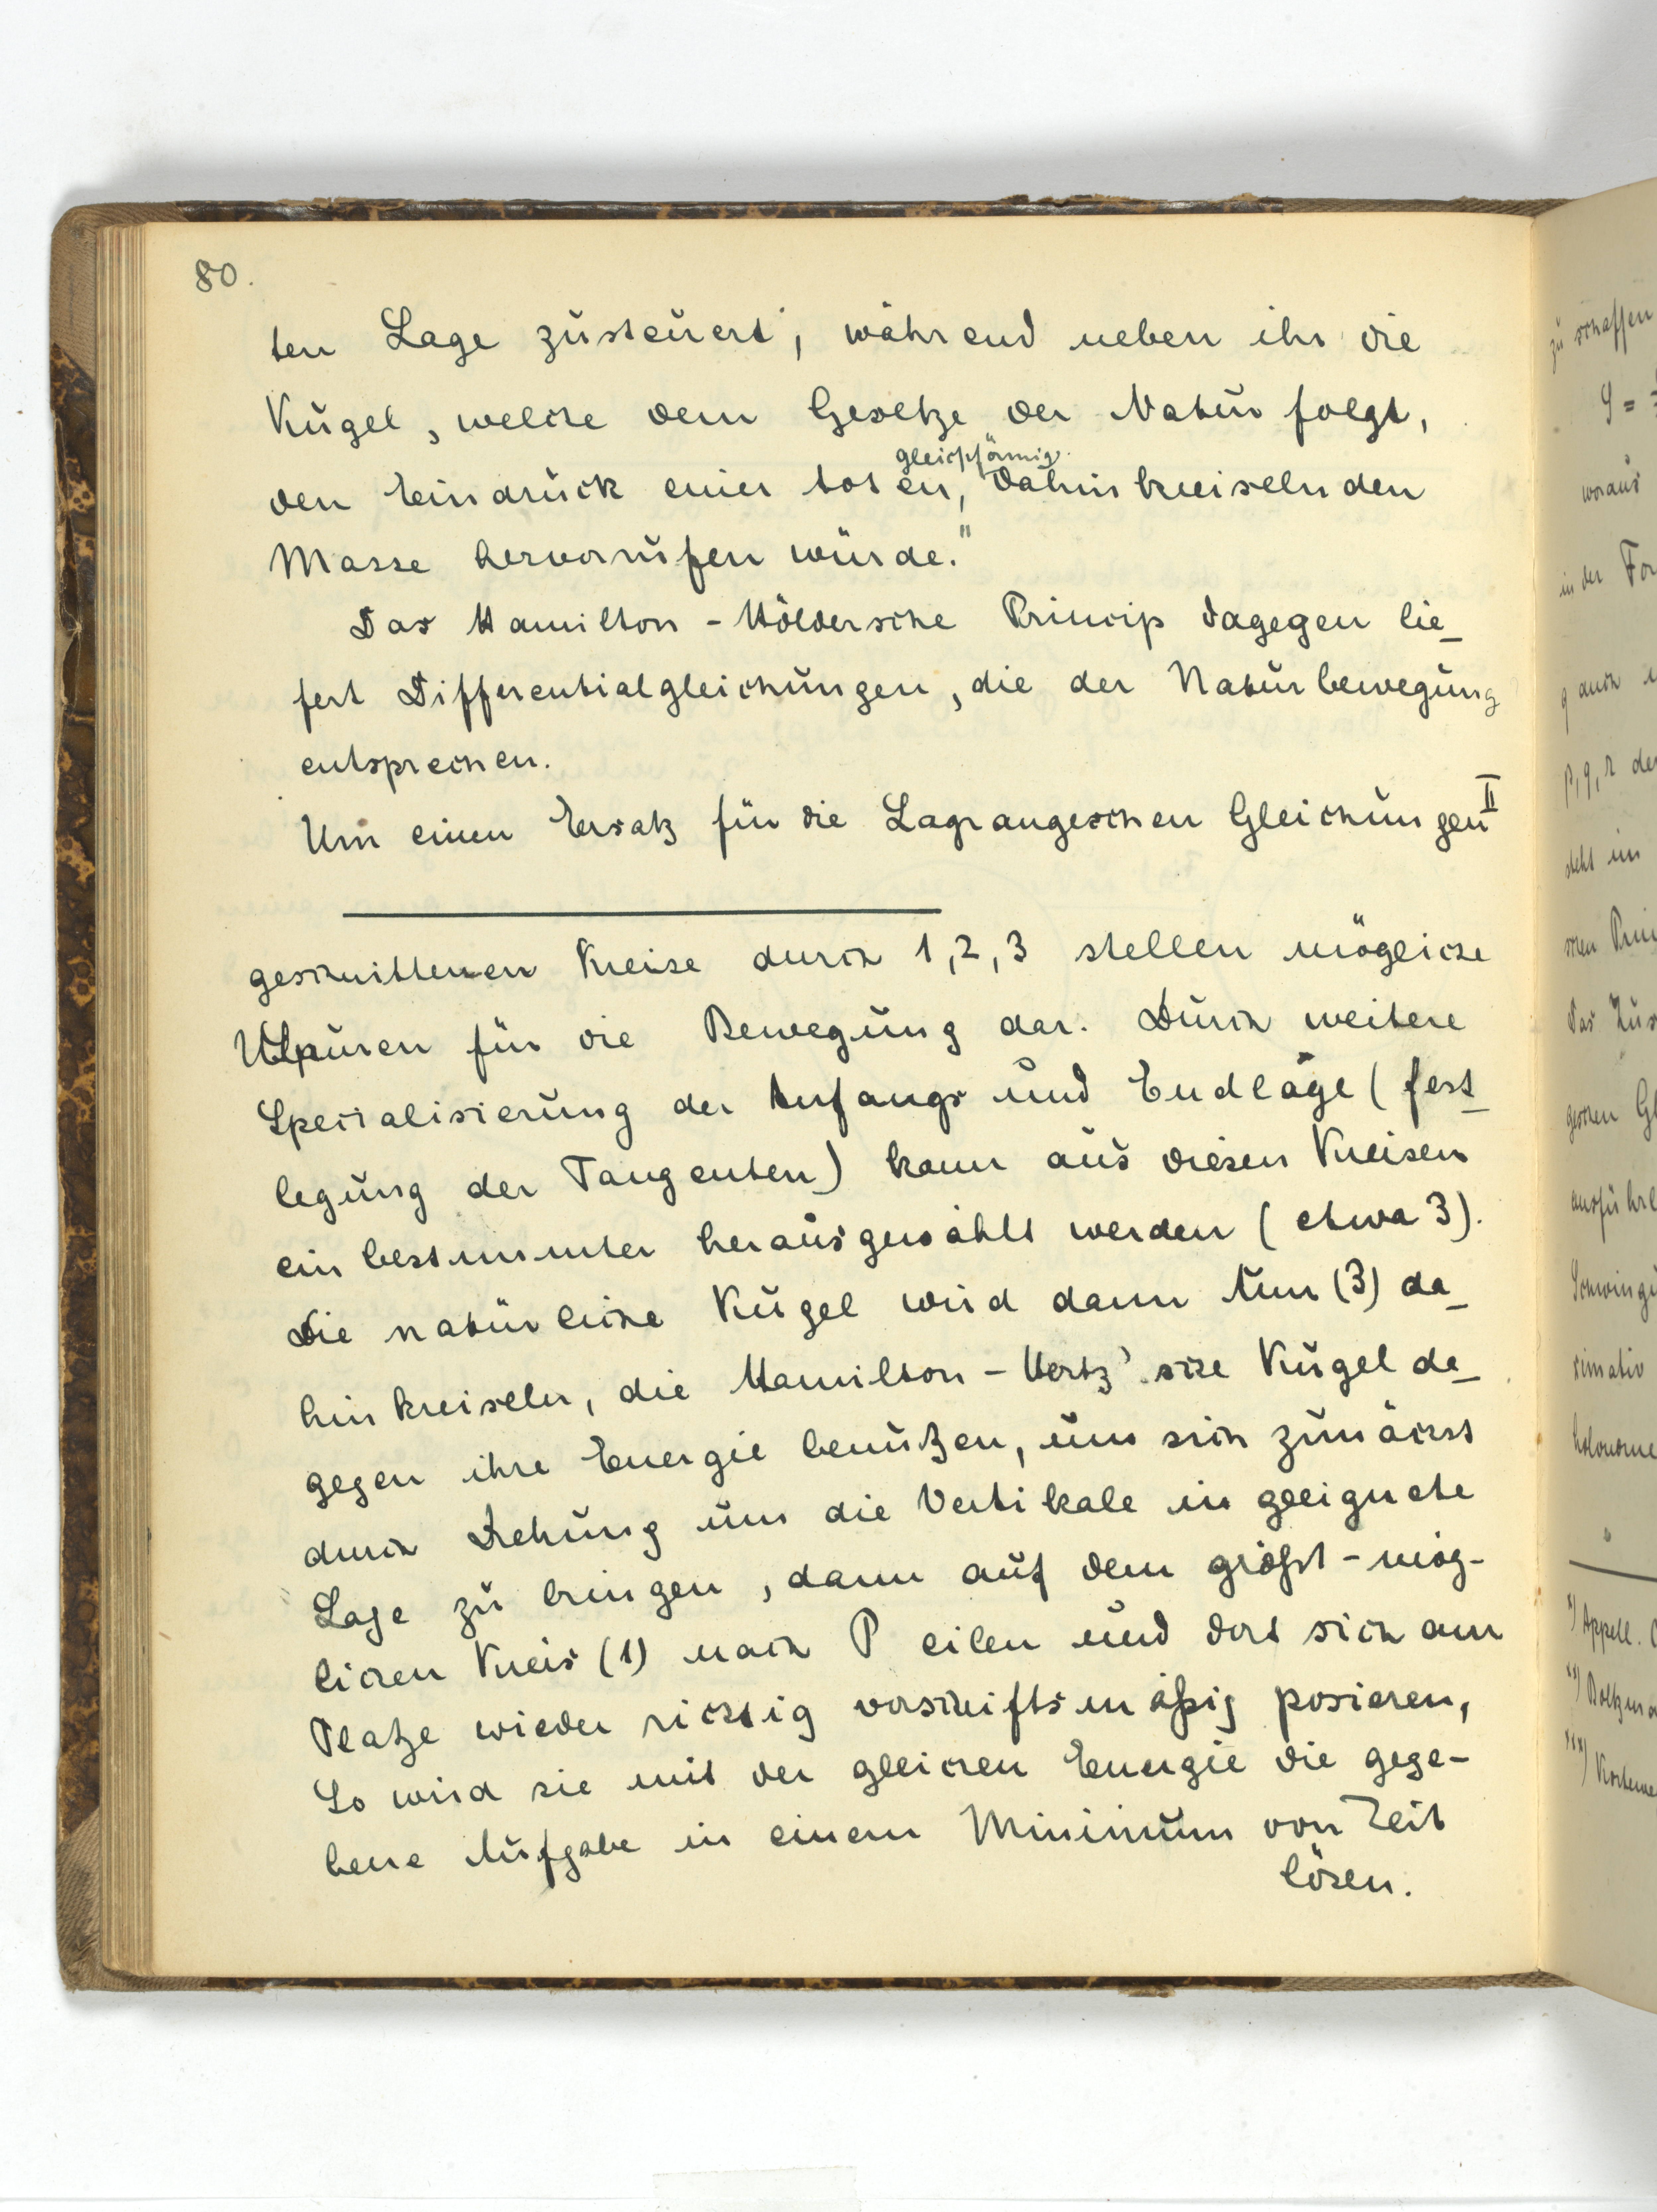 80.
ten Lage zusteuert; während neben ihr die
Kugel, welche dem Gesetze der Natur folgt,
gleichförmig
den Eindruck einer toten, dahinkreiselnden
Masse hervorrufen würde."
Das Hamilton-Höldersche Princip dagegen lie-
fert Differentialgleichungen, die der Naturbewegung
entsprechen.
Um einen Ersatz für die Lagrangeschen Gleichungen II
geschnittenen Kreise durch 1, 2, 3 stellen mögliche
Spuren für die Bewegung dar. Durch weitere
Specialisierung der Anfangs und Endlage (fest-
legung der Tangenten) kann aus diesen Kreisen
ein bestimmter herausgewählt werden (etwa 3).
Die natürliche Kugel wird dann (3) da-
hinkreiseln, die Hamilton-Hertz'sche Kugel da-
gegen ihre Energie benutzen, um sich zunächst
durch Drehung um die Vertikale in geeignete
Lage zu bringen, dann auf dem größt-mög-
lichen Kreis (1) nach P eilen und dort sich am
Platze wieder richtig vorschriftsmäßig posieren,
So wird sie mit der gleichen Energie die gege-
bene Aufgabe in einem Minimum von Zeit
lösen.
zu schaffen
woraus
in der
q auch
p, q, r
steht im
schen
Das
geschen
Schwingu
ximativ
holonome
*) Appell.
**)
***)